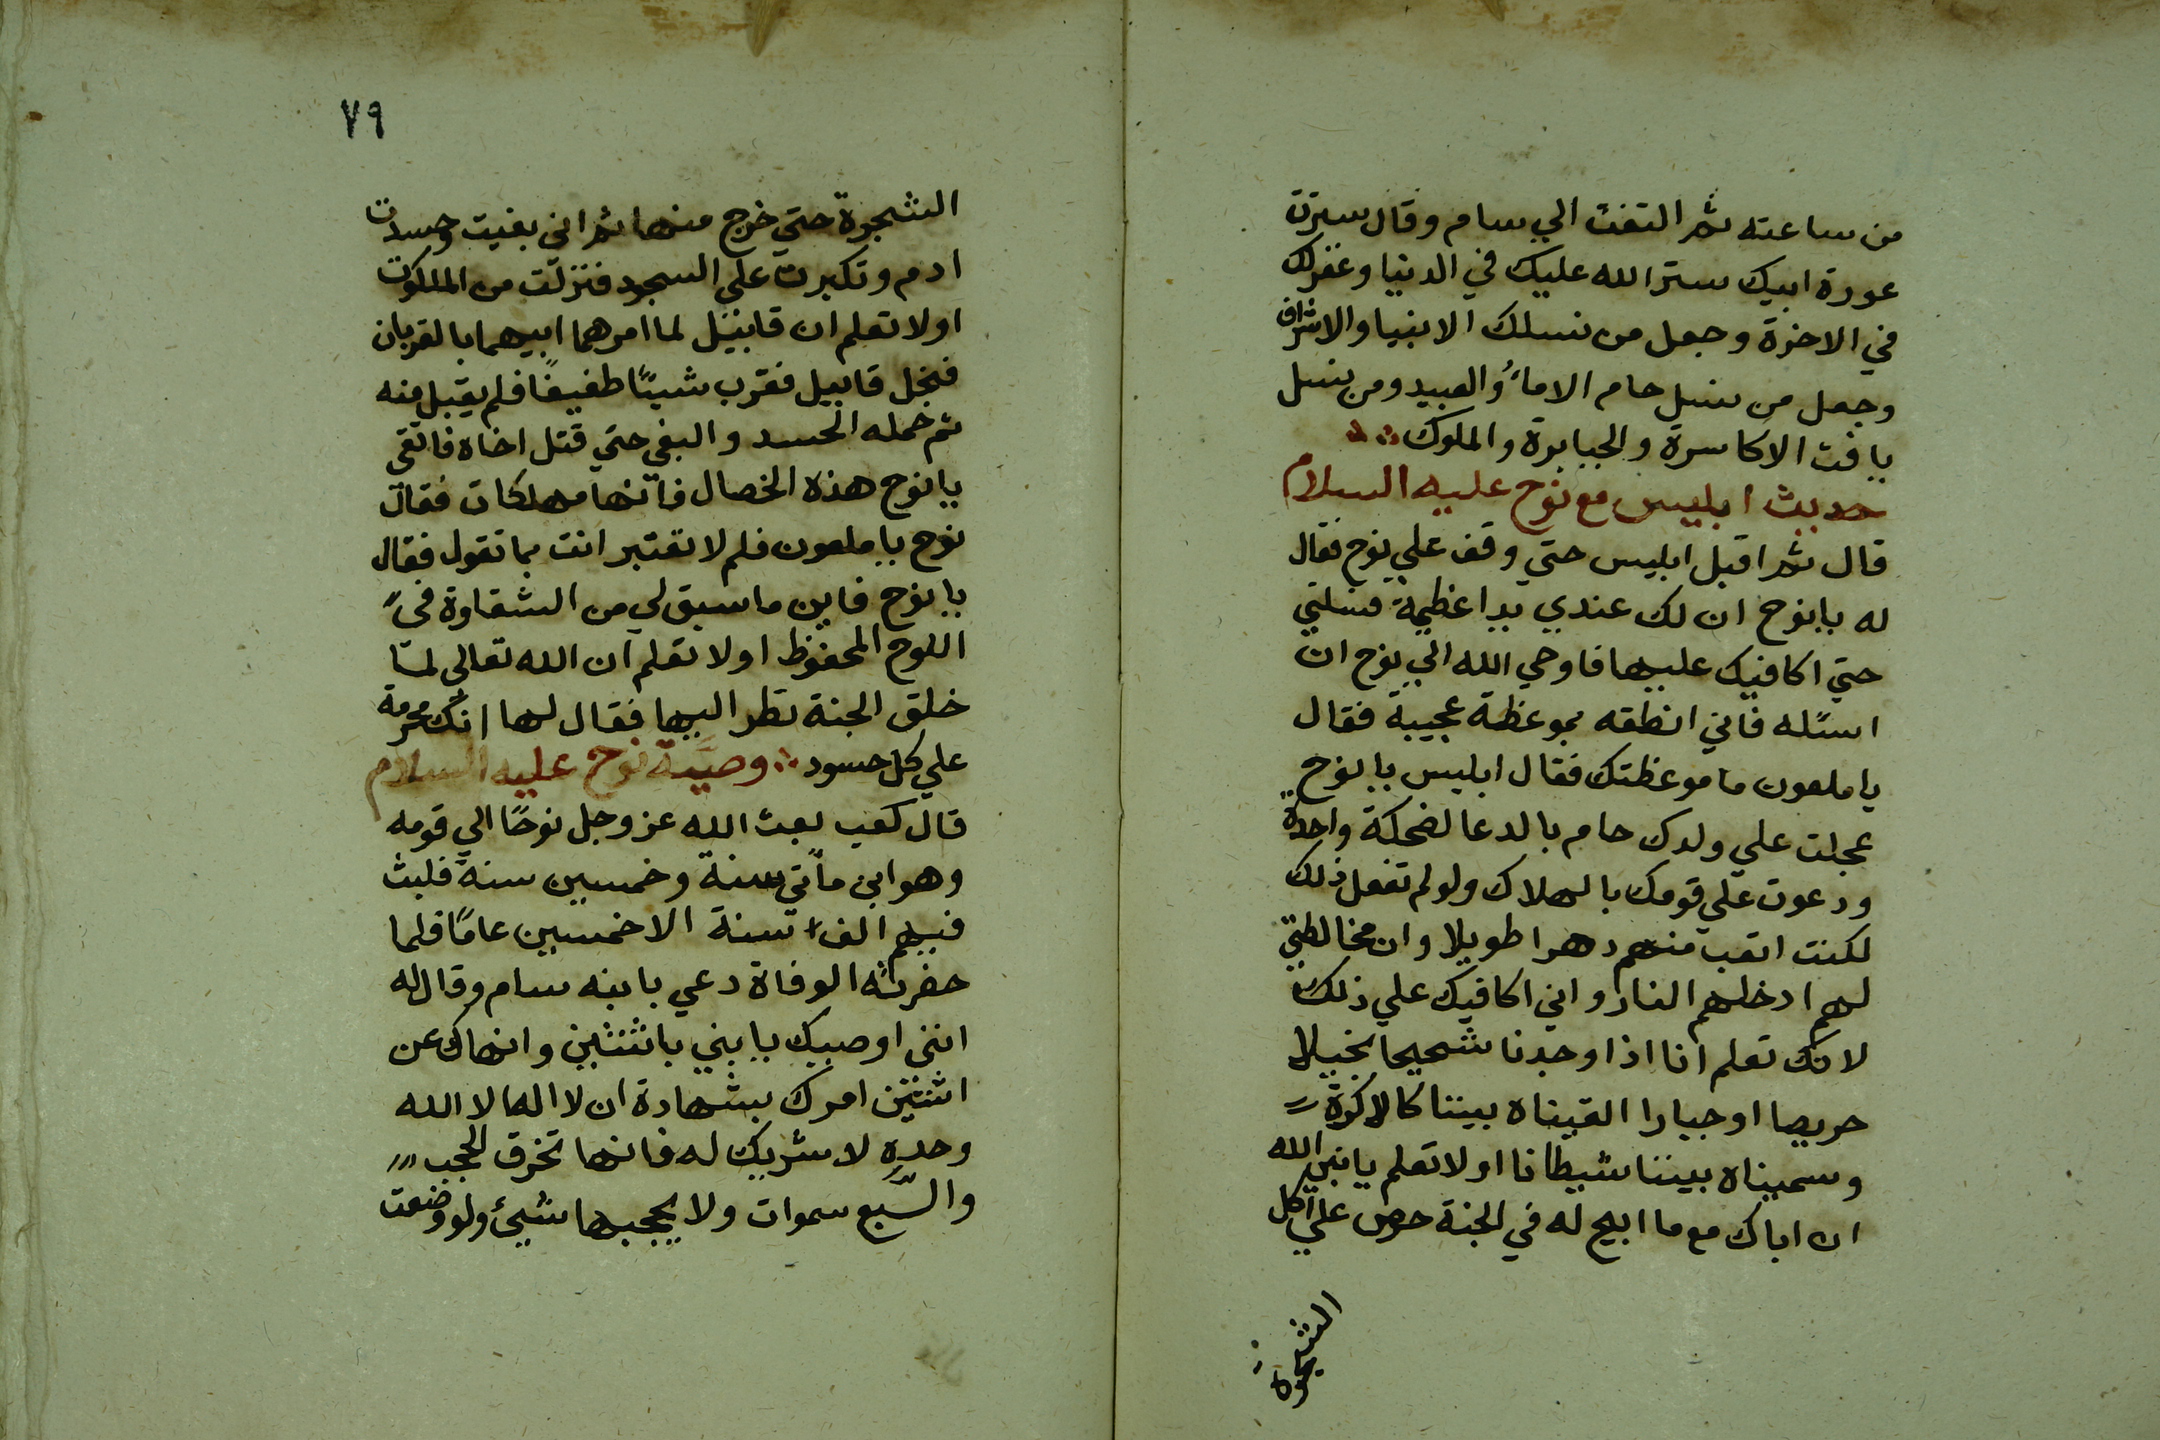 من ساعته ثم التفت الي سام وقال سترت
عورة ابيك ستر الله عليك في الدنيا وغفر لك
في الاخرة وجعل من نسلك الانبيا والاشراف
وجعل من نسل حام الاماء والعبيد ومن نسل
يافت الاكاسرة والجبابرة والملوك
حديث ابليس مع نوح عليه السلام
قال ثم اقبل ابليس حتي وقف علي نوح فقال
له يا نوح ان لك عندي يدا عظيمة فسلني
حتي اكافيك عليها فاوحي الله الي نوح ان
اسئله فاني انطقه بموعظة عجيبة فقال
يا ملعون ما موعظتك فقال ابليس يا نوح
عجلت علي ولدك حام بالدعا لضحكة واحدة
ودعوت علي قومك بالهلاك ولو لم تفعل ذلك
لكنت اتعب منهم دهرا طويلا وان مخالطتي
لهم ادخلهم النار واني اكافيك علي ذلك
لانك تعلم انا اذا وجدنا شحيحا بخيلا
حريصا او جبارا القيناه بيننا كالاكرة
وسميناه بيننا شيطانا اولا تعلم يا نبي الله
ان اباك مع ما ابيح له في الجنة حرص علي اكل
الشجرة
٧٩
الشجرة حتي خرج منها ثم اني بغيت وحسدت
ادم وتكبرت علي السجود فنزلت من الملكوت
اولا تعلم ان قابيل لما امرهما ابيهما بالقربان
فبخل قابيل فقرب شيئا طفيفا فلم يقبل منه
ثم حمله الحسد والبغي حتي قتل اخاه فاتقي
يا نوح هذه الخصال فانها مهلكات فقال
نوح يا ملعون فلم لا تعتبر انت بما تقول فقال
يا نوح فاين ما سبق لي من الشقاوة في
اللوح المحفوظ اولا تعلم ان الله تعالي لما
خلق الجنة نظر اليها فقال لها انك محرمة
علي كل حسود وصية نوح عليه السلام
قال كعب بعث الله عز وجل نوحا الي قومه
وهو ابن مأتي سنة وخمسين سنة فلبث
فيهم الف سنة الا خمسين عاما فلما
حضرته الوفاة دعي بابنه سام وقال له
انني اوصيك يا بني باثنتين وانهاك عن
اثنتين امرك بشهادة ان لا اله الا الله
وحده لا شريك له فانها تخرق الحجب
والسبع سموات ولا يحجبها شيئ ولو وضعت